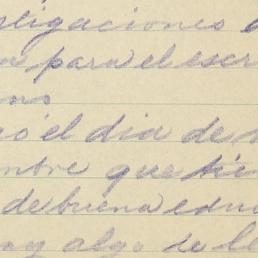 ligaciones
para el escri
no
ó el dia de
mbre que
de buena educ
ay algo de le